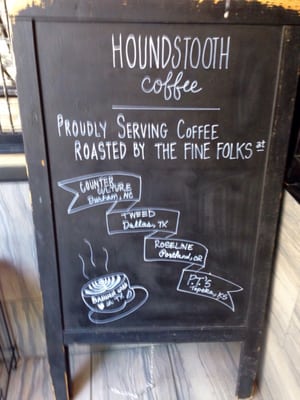 HOUNDSTOOTH
coffee
PROUDLY SERVING COFFEE
ROASTED BY THE FINE FOLKS at
COUNTER
CULTURE
Durham, NC
TWEED
Dallas, TX
ROSELINE
Portland, OR
PT's
Topeka, KS
BREWED with
♥ in TX